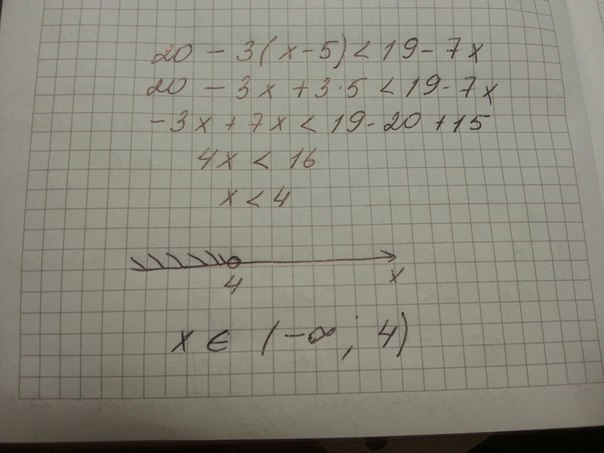 20 - 3(x-5) < 19 - 7x
20 - 3x + 3·5 < 19 - 7x
-3x + 7x < 19 - 20 + 15
4x < 16
x < 4
4 x
x ∈ (-∞; 4)